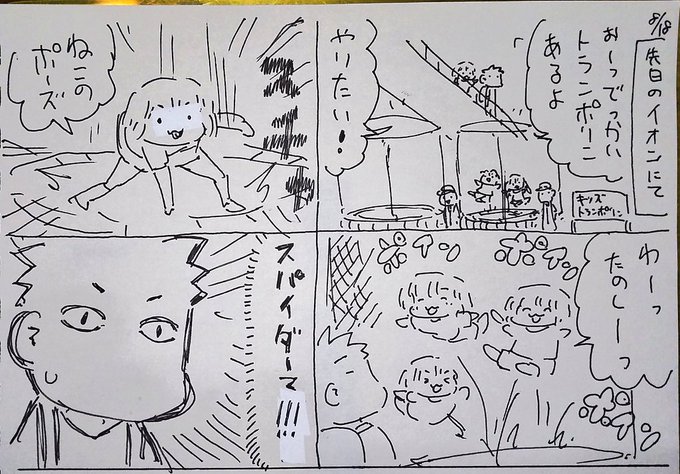 8/18
先日のイオンにて
おーっでっかい
トランポリン
あるよ
やりたい!
キッズ
トランポリン
わーっ
たのしーっ
ねこの
ポーズ
スパイダーマ!!!